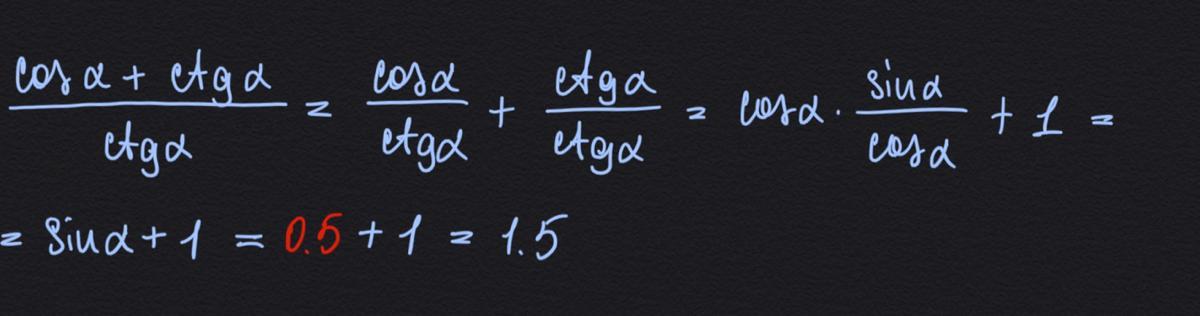 (cos α + ctg α)/(ctg α) = (cos α)/(ctg α) + (ctg α)/(ctg α) = cos α · (sin α)/(cos α) + 1 =
= sin α + 1 = 0.5 + 1 = 1.5